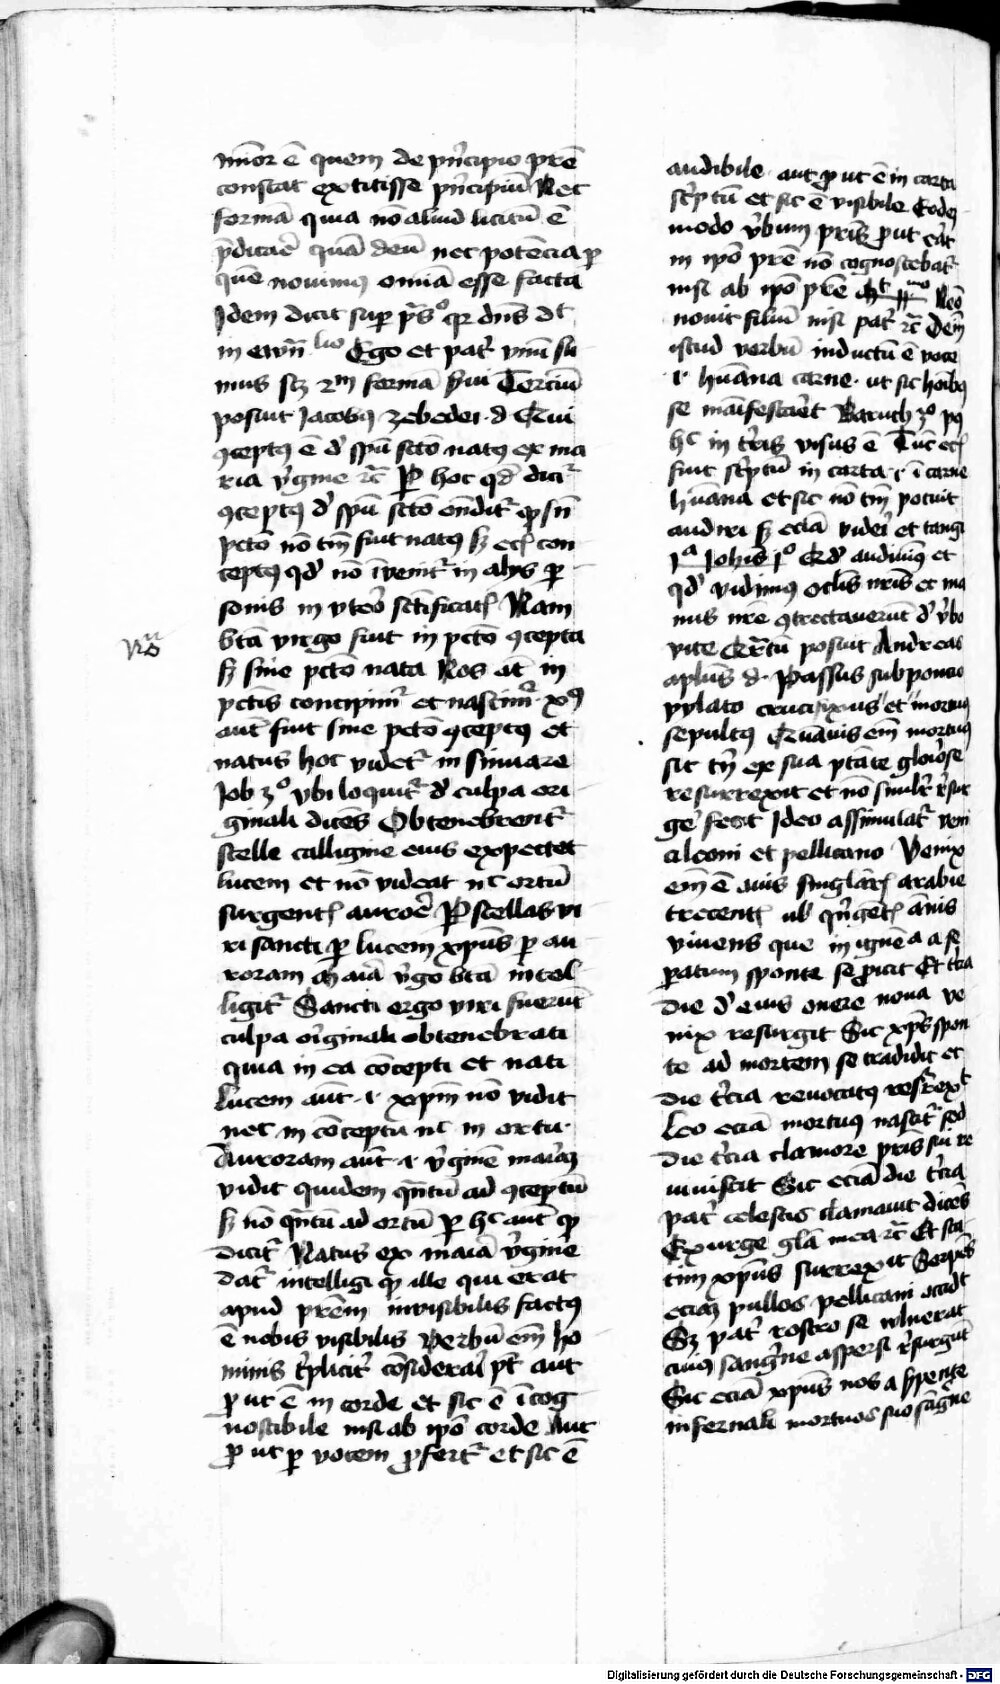 minor ē quem de pn̄cipio prē
constat extitisse pn̄cipiū Nec
formā quia nō aliud licitū ē
p̄dicaē quā deū nec potēcia ꝑ
quē nouimꝰ omīa esse facta
Idem dicit suꝑ dn̄s
in ewn̄ Ego et patˀ vnū su
mus scꝫ 2m formā Terciū
posuit Jacobꝰ zebedei d Qui
ꝯceptꝰ ē dˀ spū sctō natꝰ ex ma
ria vˀgine ꝛc̄ Per hoc qd̄ dicitˀ
ꝯceptꝰ dˀ spū sctō ondˀ
pctō nō tm̄ fuit natꝰ sꝫ con
ceptꝰ qd̄ nō īvenitˀ in alijs ꝑ
sonis in vteō sctīficatꝭ Nam
btā virgo fuit in pctō ꝯcepta
sꝫ sine pctō nata Nos at̄ in
pctīs concipimˀ et nascimˀ xꝰ
aut̄ fuit sine pctō ꝯceptꝰ et
natus hoc videtˀ insinuare
Job 3o vbi loquitˀ dˀ culpa ori
ginali dicēs Obtenebrentˀ
stelle calligine eius expectet
lucem et nō videat nc ortū
surgentꝭ auroē Per stellas vi
ri sancti ꝑ lucem xpūs ꝑ au
roram vˀgo btā intel
ligitˀ Sancti ergo viri fuerūt
culpa oīginali obtenebrati
quia in ea cōcepti et nati
Lucem aūt ·i· xpm̄ nō vidit
nec in cōceptu nc in ortu
Auroram aūt ·i· vˀginē
vidit quidem qn̄tū ad ꝯceptū
sꝫ nō qn̄tū ad ortū Per hc aut̄
dicitˀ Natus ex maiā vˀgine
datˀ intelligi ille qui erat
apud prēm invisibilis factꝰ
ē nobis visibilis Verbū em̄ ho
minis tˀplicitˀ cōsideraˀi pt̄ aut
ꝓut ē in corde et sic ē īcog
noscibile nisi ab ipō corde Aut
ꝓut ꝑ vocem ꝓfertˀ et sic ē
audibile aut ꝓut ē in carta
scˀptū et sic ē visibile Eodē
modo vˀbum prīs ꝓut eāt
in ipō prē nō cognoscebatˀ
nisi ab ipō prē Neō
novit filiū nisi patˀ ꝛc̄
istud verbū inductū ē voce
·i· hūana carne ut sic hoībꝰ
se māifestaˀet Baruth 3o
hc in tˀris visus ē Tūc
fuit scˀptū in carta ·i· ī carne
hūana et sic nō tm̄ potuit
audiri sꝫ eciā videˀi et tangi
Ja Johis Jo Qd̄ audiuīꝰ et
qd̄ vidimꝰ oclīs nrīs et ma
nus nrē ꝯtrectaverūt dˀ vˀbo
vite Qˀrtū posuit Andreas
aplūs d Passus sub poncio
pylato crucifixus et mortuꝰ
sepultꝰ Quāuis em̄ mortuꝰ
sit tn̄ ex sua ptāte gloiˀose
resurrexit et nō similˀr rˀsur
geˀ fecit Ideo assimilatˀ veni
ci leoni et pellicano Venix
em̄ ē auis singˀlarꝭ arabie
trecentꝭ ubˀ qˀngētꝭ ānis
vivens que in ignē a a se
ꝑatum sponte se ꝓicit Et tˀcia
die dˀ eius onere noua ve
nix resurgit Sic xpūs spon
te ad mortem se tradidit et
die tˀcia revocatꝰ resˀrext
Leo eciā mortuꝰ nascitˀ sed
die tˀcia clamore prīs sui re
uiuiscit Sic eciā die tˀcia
patˀ celestis clamauit dicēs
Exurge glā mea ꝛc̄ Et sta
tim xpūs surrexit Serpēs
eciā pullos pellicani occidt
Sꝫ patˀ rostro se wlnerat
cuiꝰ sangˀne aspersi rˀsurgūt
Sic eciā xpūs nos a sˀpente
infernali mortuos suo sāgˀne
Digitalisierung gefördert durch die Deutsche Forschungsgemeinschaft - DFG